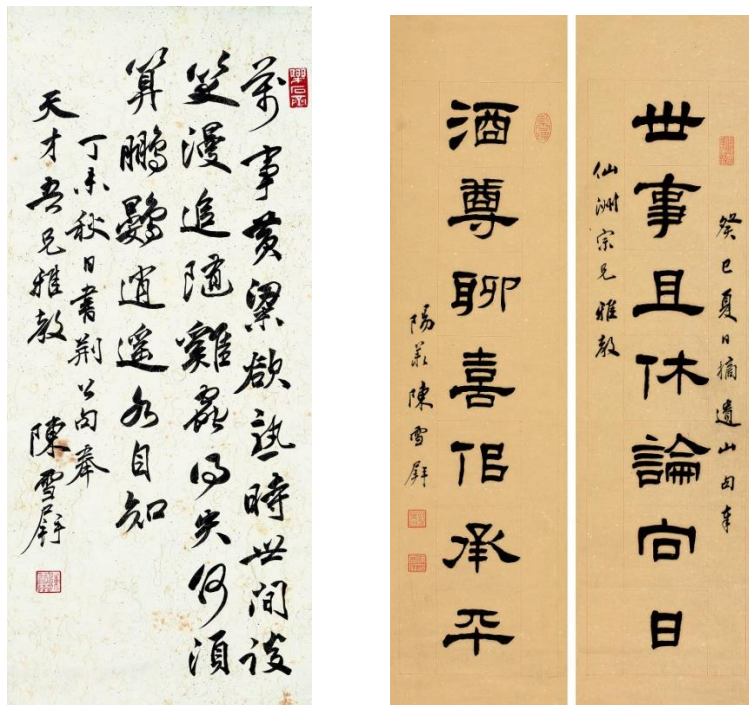 萬事黃粱欲熟時世間談
笑漫追隨雞蟲得失何須
算鵬鷃逍遙各自知
丁未秋日書荆公句奉
天才吾兄雅教 陳雪屏
癸巳夏日摘遺山句奉
世事且休論向日
仙洲宗兄雅教
酒尊聊喜佀承平
陽羨陳雪屏